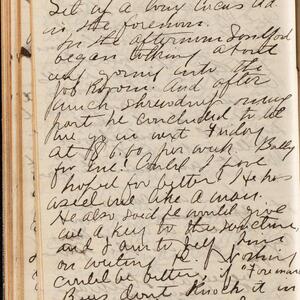 Set up a
in the forenoon.
In the afternoon
began talking about
my going into the
job Room. And after
much shrewdness on my
part he concluded to let
me go in next Friday
at $6.00 per week. Bully
for me! Could I have
hoped for better! He has
used me like a man.
He also said he would give
me a key to the sanctum,
and I am to help him
on writing &c. Nothing
could be better, if Foreman
Bros dont knock it in